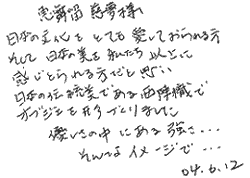 日本の文化を とても 愛しておられる方
そして 日本の美を 私たち 以上に
感じとられる方だと思い
日本の伝統美である西陣織で
オブジェを 形づくりました
優しさの中にある強さ・・・
そんなイメージで・・・
04.6.12